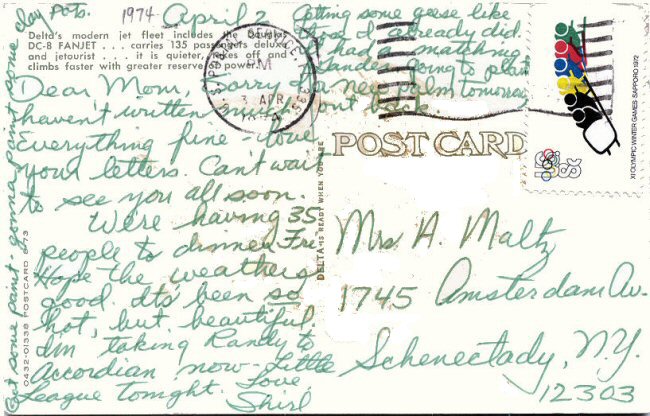 1974 April 2
Delta's modern jet fleet includes the Douglas
DC-8 FANJET . . . carries 135 passengers deluxe
and jetourist . . . it is quieter, takes off and
climbs faster with greater reserve of power.
Dear Mom, Sorry I
haven't written much.
Everything fine - love
your letters. Can't wait
to see you all soon.
We're having 35
people to dinner Fri.
Hope the weather's
good. It's been so
hot, but beautiful.
I'm taking Randy to
Accordian now - Little
League tonight. Love
Shirl
Getting some geese like
those I already did.
had a matching
going to plant
a new palm tomorrow
out back.
Got some paint - gonna paint some
clay pots.
0432-01338 POSTCARD 6-73
DELTA IS READY WHEN YOU ARE
POST CARD
PM
3 APR
XI OLYMPIC WINTER GAMES · SAPPORO 1972
8c
US
Mrs A. Maltz
1745 Amsterdam Av.
Schenectady, N.Y.
12303